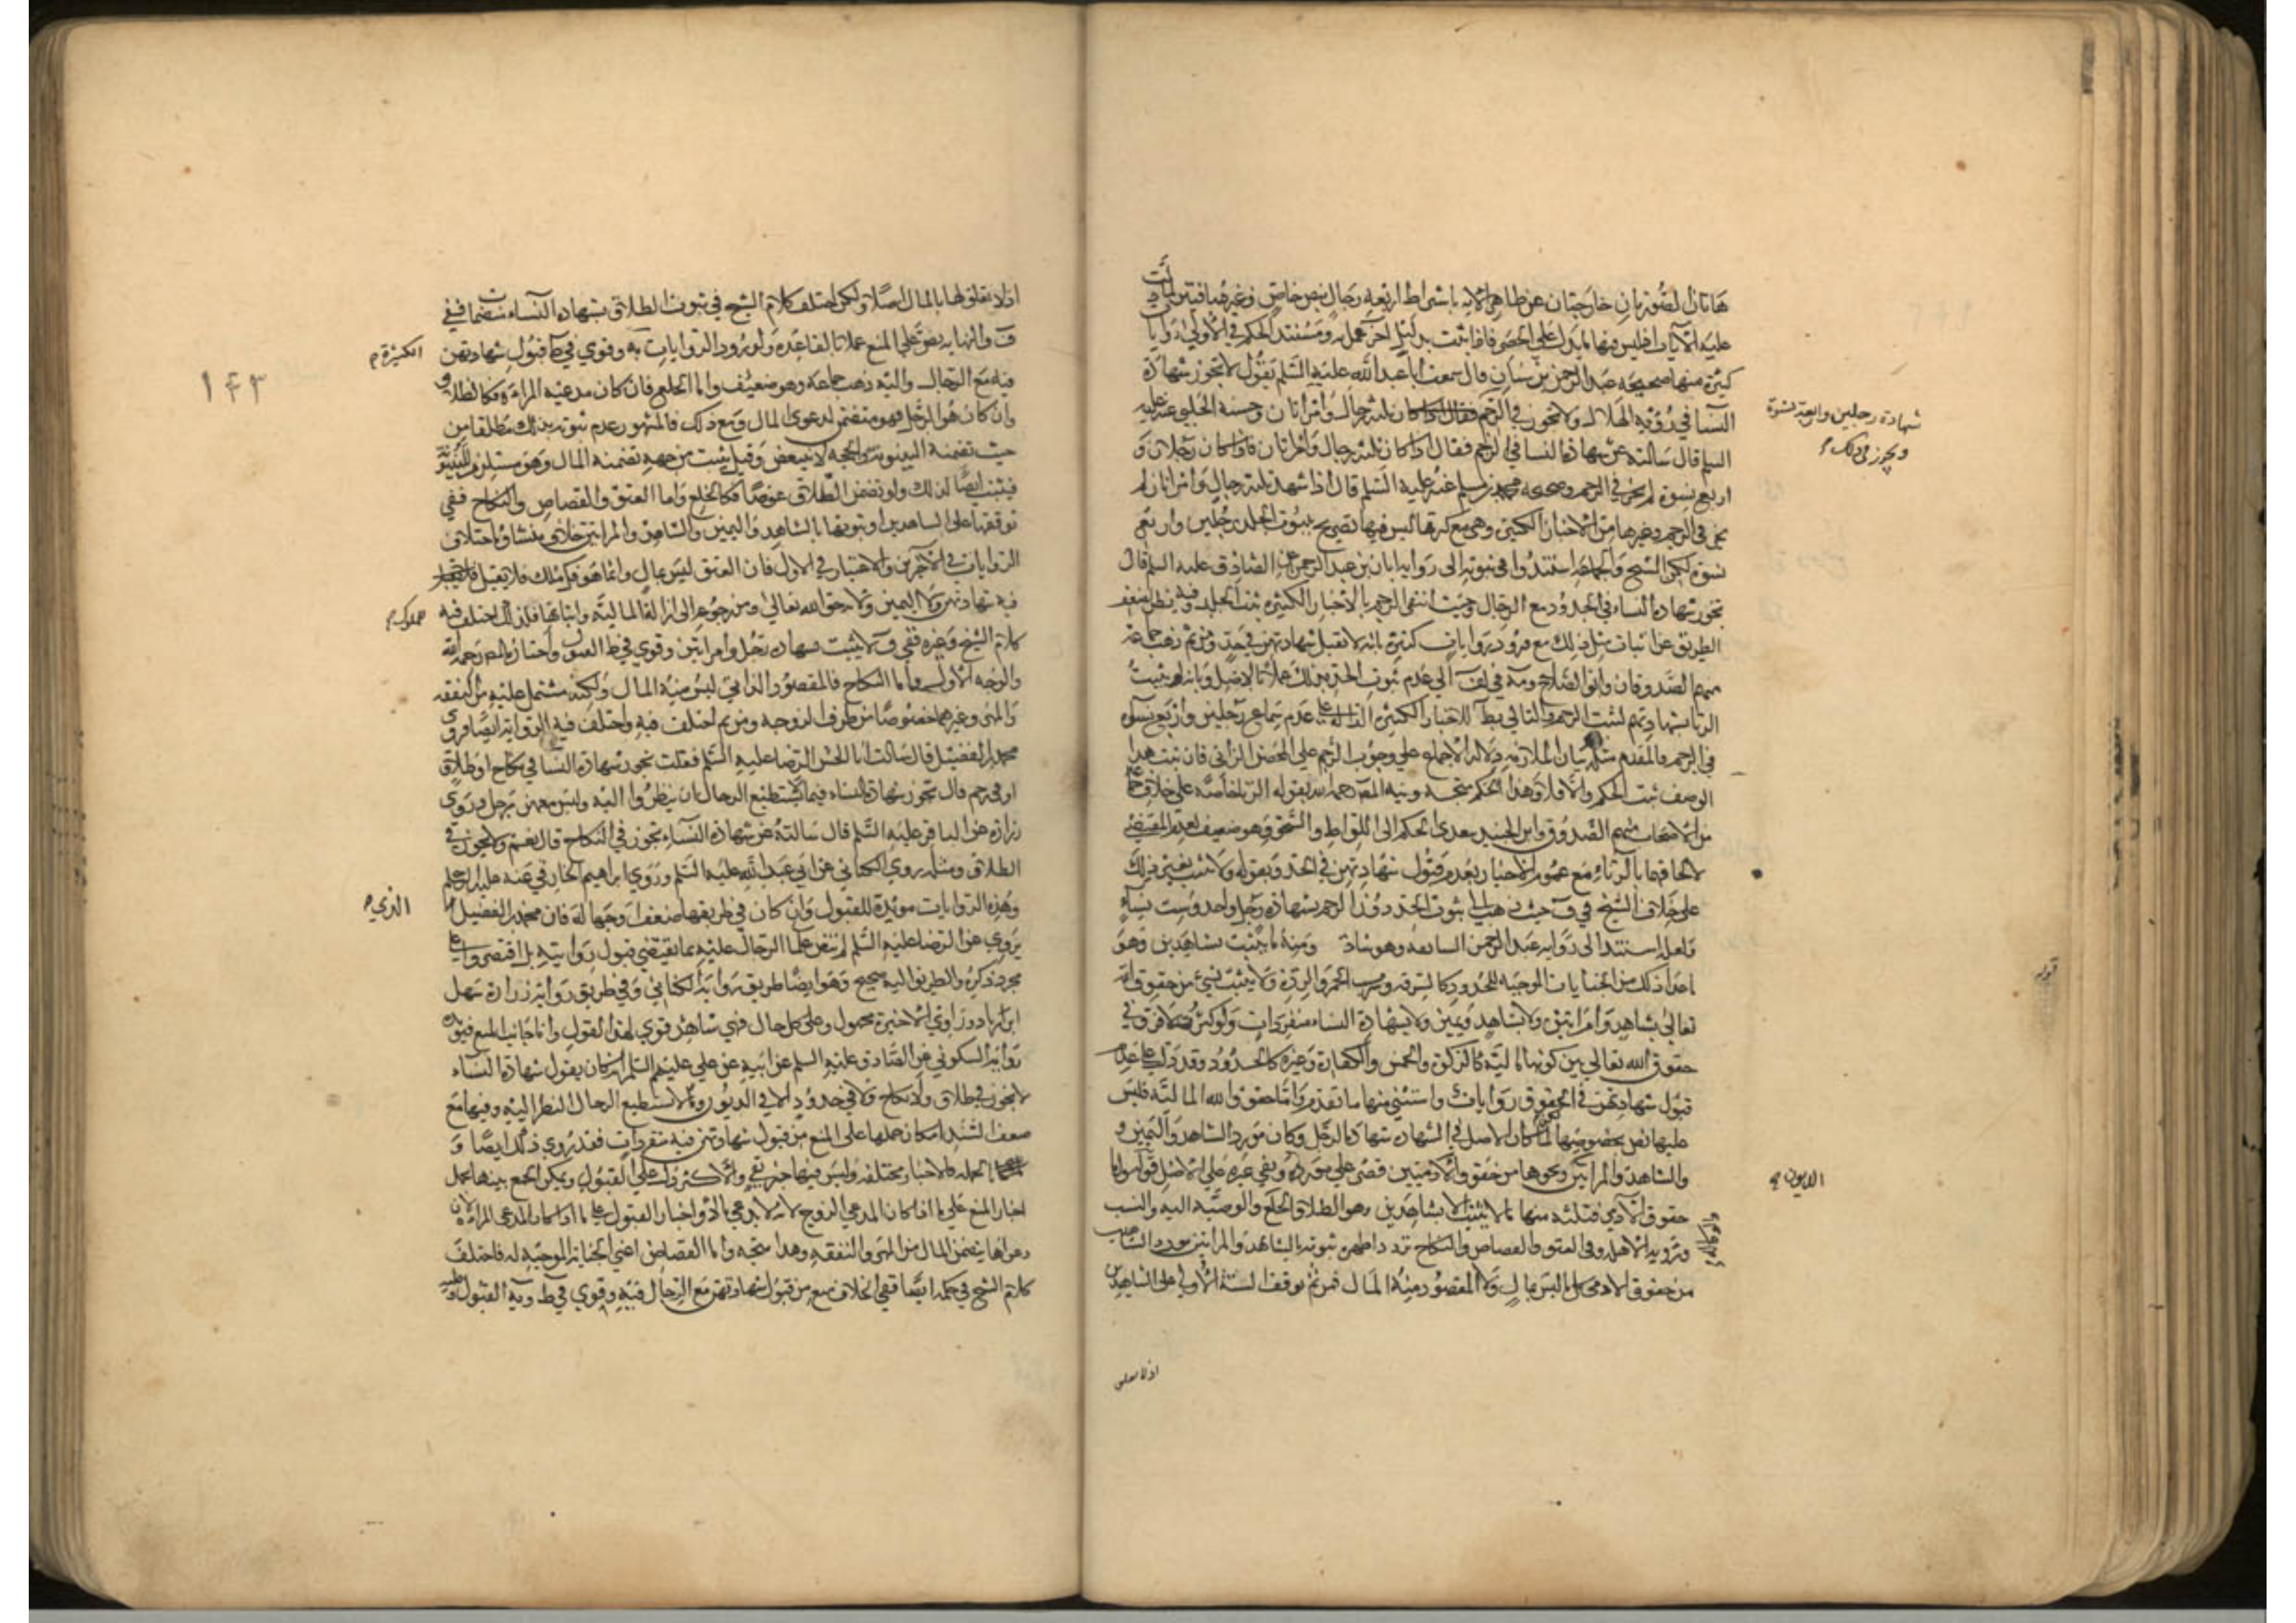 هاتان الصورتان خارجتان عن ظاهر الآية باشتراط اربعة رجال بنص خاص وغيرهما فيتر لمادلت
عليه الآيات اذ ليس فيها ما يدل على الحصر فاذا ثبت بدليل اخر عمل به ومستند الحكم في الاولى روايات
كثيرة منها صحيحة عبد الرحمن بن سنان قال سمعت ابا عبد الله عليه السلم يقول لا تجوز شهادة
النساء في رؤية الهلال ولا تجوز في الرجم شهادة رجلين واربعة نسوة ويجوز في ذلك ثلثة رجال وامراتان وحسنة الحلبي عنه عليه
السلم قال سالته عن شهادة النساء في الرجم فقال اذا كان ثلثة رجال وامراتان فاذا كان رجلان و
اربع نسوة لم يجز في الرجم وصحيحة محمد بن مسلم عنه عليه السلم قال اذا شهد ثلثة رجال وامراتان لم
يجز في الرجم وغيرها من الاخبار الكثيرة وهي مع كثرتها ليس فيها تصريح بثبوت الجلد برجلين واربع
نسوة لكن الشيخ والجماعة استندوا في ثبوته الى رواية ابان بن عبد الرحمن عن الصادق عليه السلم قال
تجوز شهادة النساء في الحدود مع الرجال وحيث انتفى الرجم بالاخبار الكثيرة ثبت الجلد وفيه نظر لضعف
الطريق عن اثبات مثل ذلك مع ورود روايات كثيرة بانه لا تقبل شهادتهن في حد ومن ثم ذهب جماعة
منهم الصدوقان وابو الصلاح ومة في لف الى عدم ثبوت الحد بذلك عملا بالاصل وبانه لو ثبت
الزنا بشهادتهم لثبت الرجم والتالي بط للاخبار الكثيرة الدالة على عدم سماع رجلين واربع نسوة
في الرجم فالمقدم مثله بيان الملازمة دلالة الاجماع على وجوب الرجم على المحصن الزاني فان ثبت هذا
الوصف ثبت الحكم والا فلا وهذا الحكم متجه ونبه المصر رحمه الله بقوله الزنا خاصة على خلاف جماعة
من الاصحاب منهم الصدوق وابن الجنيد بعدى الحكم الى اللواط والسحق وهو ضعيف لعدم المقتضي
لالحاقهما بالزناء مع عموم الاخبار بعدم قبول شهادتهن في الحد وبقوله ولا يثبت بغير ذلك
على خلاف الشيخ في ف حيث ذهب الى ثبوت الحد دون الرجم بشهادة رجل واحد وست نساء
ولعله استند الى رواية عبد الرحمن السابقة وهو شاذ ومنه ما يثبت بشاهدين وهو
ما عدا ذلك من الجنايات الموجبة للحدود كالسرقة وشرب الخمر والردة ولا يثبت شيء من حقوق الله
تعالى بشاهد وامراتين ولا بشاهد ويمين ولا بشهادة النساء منفردات ولو كثرن لا فرق في
حقوق الله تعالى بين كونها مالية كالزكوة والخمس والكفارة وغيره كالحدود وقد دلت على عدم
قبول شهادتهن في الحقوق روايات واستثني منها ما تقدم واما حقوق الله المالية فليس
عليها نص بخصوصها لما كان الاصل في الشهادة شهادة الرجل وكان مورد الشاهد واليمين و
والشاهد والمراتين ونحوها من حقوق الادميين الديون قصر على مورده وبقي غيره على الاصل قوله واما
حقوق الآدمي فثلثة منها ما لا يثبت الا بشاهدين وهو الطلاق والخلع والوصية اليه والنسب
ورؤية الاهلة وفي العتق والقصاص والنكاح تردد اظهره ثبوته بالشاهد والمراتين
من حقوق الادمي كل ما ليس بمال ولا المقصود منه المال فمن ثم توقف الستة الاولى على الشاهدين
اذ لا تعلق
قوله
١٤٣
اذ لا تعلق لها بالمال اصلا ولكن اختلف كلام الشيخ في ثبوت الطلاق بشهادة النساء منضمات ففي
ف والنهاية نص على المنع عملا بالقاعدة ولورود الروايات الكثيرة به وقوي في ط قبول شهادتهن
فيه مع الرجال واليه ذهب جماعة وهو ضعيف واما الخلع فان كان مدعيه المراة فكالطلاق
وان كان هو الرجل فهو متضمن لدعوى المال ومع ذلك فالمشهور عدم ثبوته بذلك مطلقا من
حيث تضمنه البينونة والحجة لا تتبعض وقيل يثبت من جهة تضمنه المال وهو مستلزم للبينونة
فيثبت ايضا لذلك ولو تضمن الطلاق عوضا فكالخلع واما العتق والقصاص والنكاح ففي
توقفها على الشاهدين او ثبوتها بالشاهد واليمين والشاهد والمراتين خلاف منشاؤه اختلاف
الروايات في الاخرين والاعتبار في الاول فان العتق ليس بمال وانما هو فك ملك فلا يقبل
فيه شهادتهن ولا اليمين ولانه حق الله تعالى ومن رجوعه الى ازالة المالية واثباتها للمملوك فلذلك اختلف فيه
كلام الشيخ وغيره ففي ف لا يثبت بشهادة رجل وامراتين وقوي في ط القبول واختاره المصر رحمه الله
والوجه الاول واما النكاح فالمقصود الذاتي ليس منه المال ولكنه مشتمل عليه من النفقة
والمهر وغيرهما خصوصا من طرف الزوجة ومن ثم اختلف فيه واختلف فيه الرواية ايضا فروى
محمد بن الفضيل قال سالت ابا الحسن الرضا عليه السلم فقلت تجوز شهادة النساء في نكاح او طلاق
او في رجم قال تجوز شهادة النساء فيما لا يستطيع الرجال ان ينظروا اليه وليس معهن رجل وروى
زرارة عن الباقر عليه السلم قال سالته عن شهادة النساء تجوز في النكاح قال نعم ولا تجوز في
الطلاق ومثله روى الكناني عن ابي عبد الله عليه السلم وروى ابراهيم الخارقي عنه عليه السلم
وهذه الروايات مؤيدة للقبول وان كان في طريقها ضعف او جهالة فان محمد بن الفضيل الذي
يروي عن الرضا عليه السلم لم ينص علماء الرجال عليه بما يقتضي قبول روايته بل اقتصروا على
مجرد ذكره والطريق اليه صحيح وهو ايضا طريق رواية الكناني وفي طريق رواية زرارة سهل
ابن زياد وراوي الاخيرة مجهول وعلى كل حال فهي شاهد قوي لهذا القول واما جانب المنع فيؤيده
رواية السكوني عن الصادق عليه السلم عن ابيه عن علي عليهم السلم انه كان يقول شهادة النساء
لا تجوز في طلاق ولا نكاح ولا في حدود الا في الديون وما لا يستطيع الرجال النظر اليه وفيها مع
ضعف السند امكان حملها على المنع من قبول شهادتهن فيه منفردات فقد روي ذلك ايضا و
بالجملة فالاخبار مختلفة وليس فيها خبر نقي والاكثر دل على القبول ويمكن الجمع بينها بحمل
اخبار المنع على ما اذا كان المدعي الزوج لانه لا يدعي مالا واخبار القبول على ما اذا كان المدعي المراة لان
دعواها يتضمن المال من المهر والنفقة وهذا متجه واما القصاص اعني الجناية الموجبة له فاختلف
كلام الشيخ في حكمه ايضا ففي الخلاف منع من قبول شهادتهن مع الرجال فيه وقوي في ط وية القبول وعليه